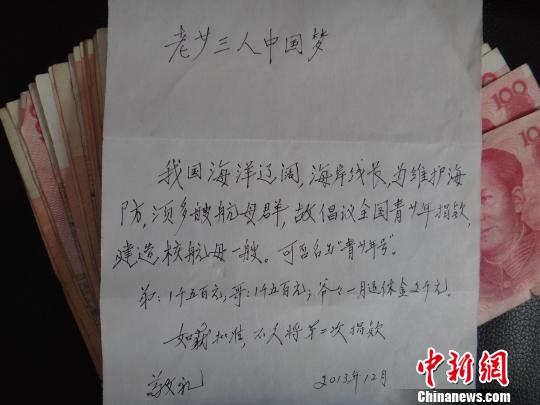 老少三人中国梦
我国海洋辽阔,海岸线长,为维护海
防,须多艘航母群,故倡议全国青少年捐款,
建造核航母一艘。可否名为“青少年号”。
弟:1千五百元,哥:1千五百元,爷爷一月退休金2千元。
如蒙批准,不久将第二次捐款
敬礼
2013年12月
100
100
100
中新网
www.chinanews.com